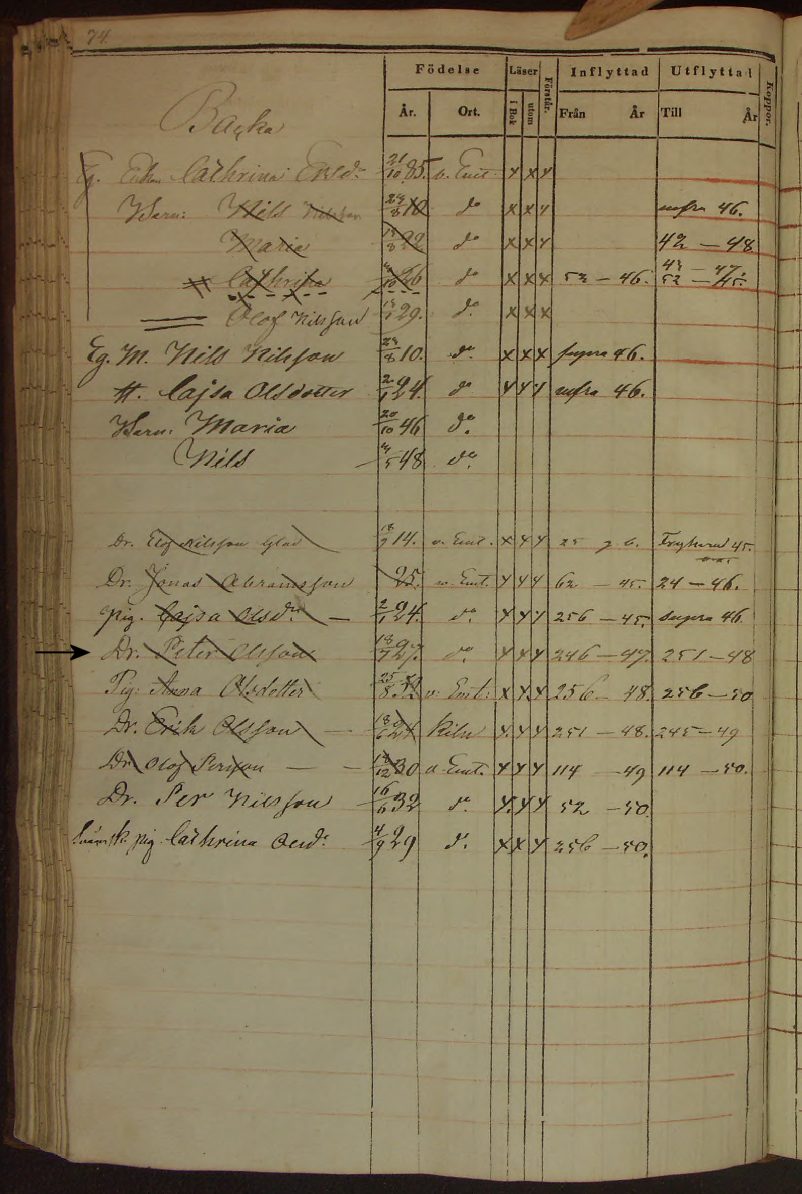 74.
Födelse Läser Förstår. Inflyttad Utflyttad Koppor.
År. Ort. i Bok utom Från År Till År
Backa
Eg. Enkan Cathrina Ersd. 21/10 85. v. Emt. x x x
Barn: Nils Nilsson 24/8 10 do x x x infra 46.
Maria 22 do x x x 42 — 48
Cathrina 26 do x x x 52 — 46. 43 — 47. 52 — 45.
Olof Nilsson 29. do. x x x
Eg. M. Nils Nilsson 24/8 10. do. x x x supra 46.
H. Cajsa Olsdotter 2/1 24. do x x x infra 46.
Barn: Maria 20/10 46 do.
Nils 48 do.
Dr. Olof Nilsson Glad 18/9 14. v. Emt. x x x 25 g. b. Fryksand 45.
Dr. Jonas Abramsson 25. v. Emt. x x x 62 — 45. 24 — 46.
Pig. Cajsa Olsdr. — 2/1 24. do. x x x 256 — 45. supra 46
Dr. Peter Olsson 18/7 27. do. x x x 246 — 47. 251 — 48
Pig. Anna Olsdotter 25/8 32 v. Emt: x x x 256 — 48. 256 — 50
Dr. Erik Olsson — 18/6 24 Kiln x x x 251 — 48. 245 — 49
Dr. Olof Persson — — 12 30 v. Emt. x x x 114 — 49 114 — 50.
Dr. Per Nilsson 16/6 32 do. x x x 52 — 50.
pig. Cathrina 4/9 29 do. x x x 256 — 50.